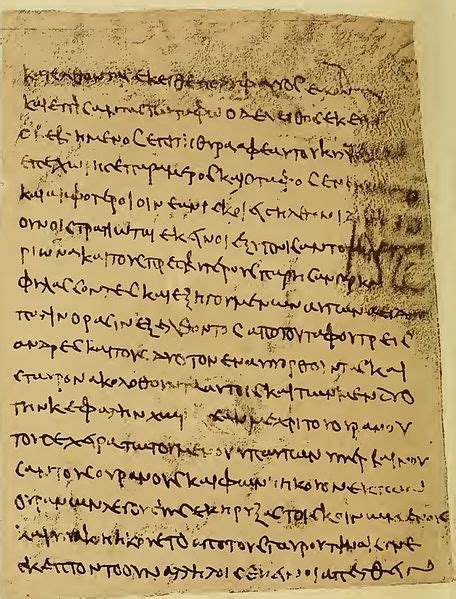 κατελθοντας εκειθεν πολυ φεγγος
και εγγισαντας τω ταφω ο δε λειθος εκεινος
βεβλημενος επι τη θυρα αφ εαυτου
επεχωρησε παρα μερος και ο ταφος
και αμφοτεροι οι νεανισκοι εισηλθον
ουν οι στρατιωται εκεινοι εξυπνισαν τον
ριωνα και τους πρεσβυτερους παρησαν γαρ
φυλασσοντες και εξηγουμενων αυτων α ειδον
παλιν ορασιν εξελθοντος απο του ταφου τρεις
ανδρες και τους δυο τον ενα υπορθουντας και
σταυρον ακολοθουντα αυτοις και των μεν δυο
την κεφαλην μεχρι του ουρανου
του δε χειρατωτουμενου υπ αυτων υπερβαινου
σαν τους ουρανους και φωνης ηκουον εκ των
ουρανων λεγουσης εκηρυξας τοις κοινωμενοις
ηκουετο απο του σταυρου
εσκεπτοντο ουν αλληλοις εκεινοι απελθειν